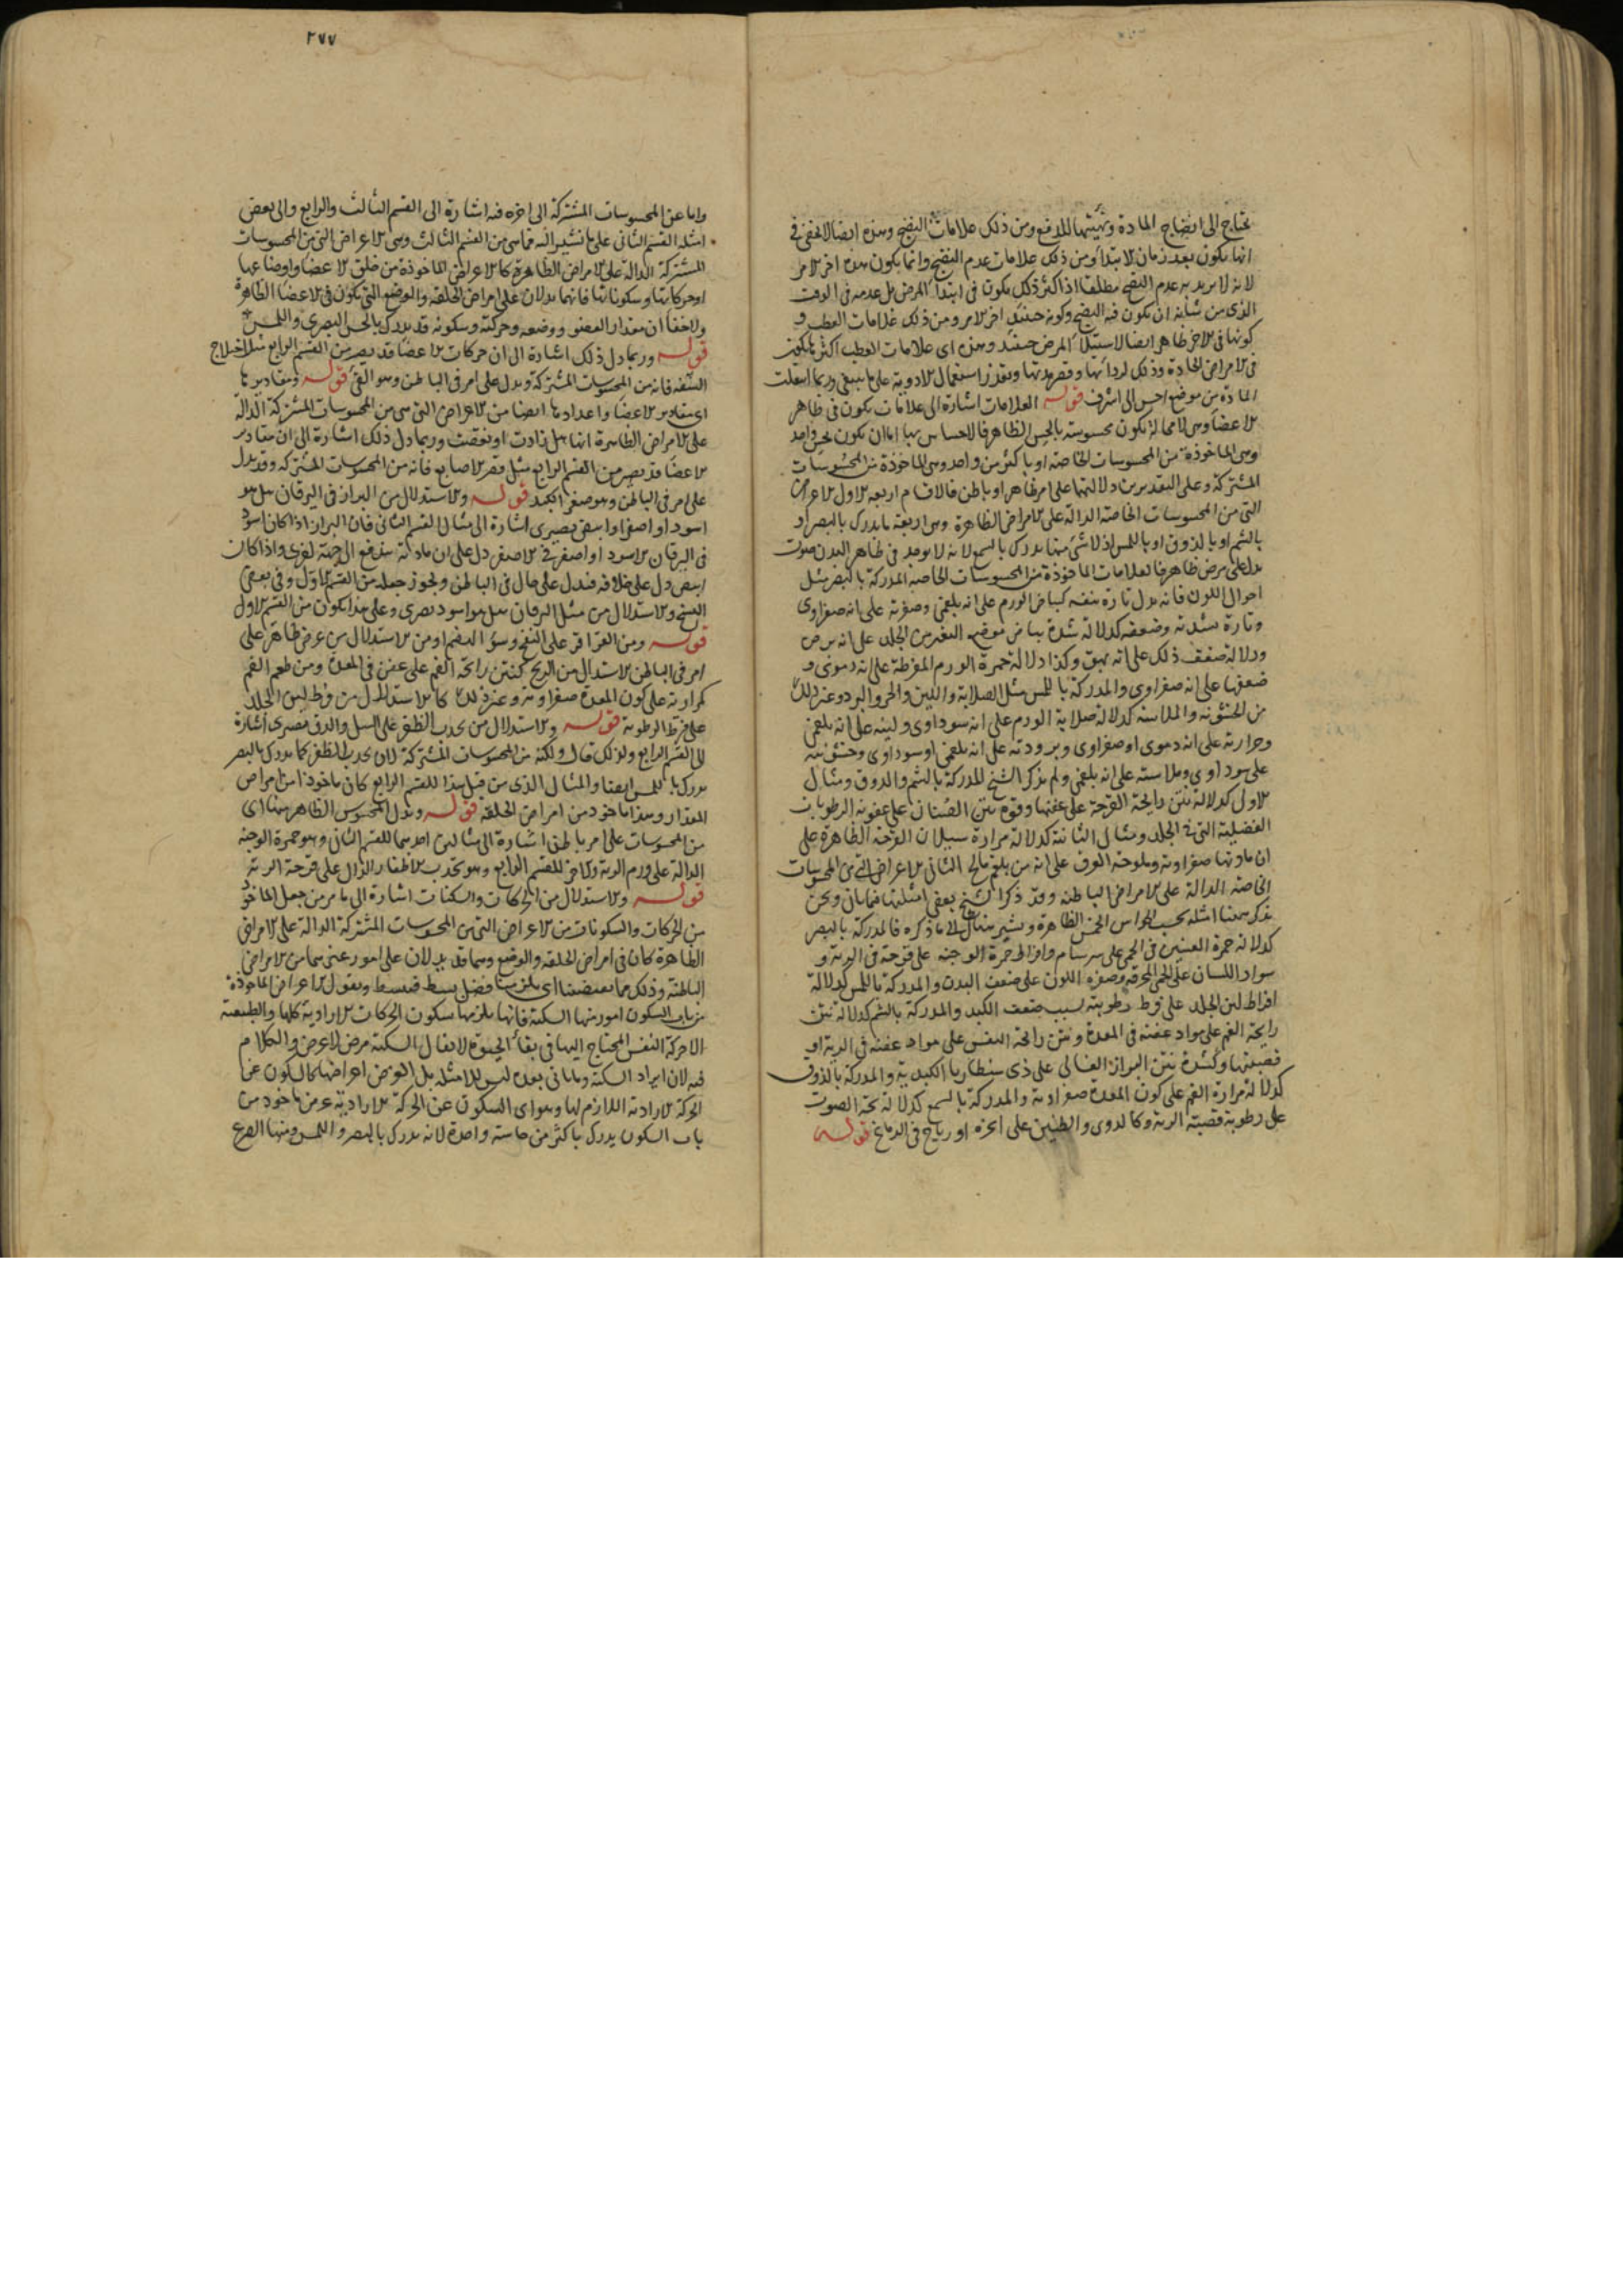 يحتاج الى انضاج المادة وتهيئتها للدفع ومن ذلك علامات النضج وهذه ايضا لا تخفى في
انها تكون بعد زمان الابتداء ومن ذلك علامات عدم النضج وانما يكون هذه اخر الامر
لانه لا يريد به عدم النضج مطلقا اذ اكثر ذلك يكون في ابتداء المرض بل عدمه في الوقت
الذى من شانه ان يكون فيه النضج وكونه حينئذ اخر الامر ومن ذلك علامات العطب و
كونها في الاخر ظاهر ايضا لاستيلاء المرض حينئذ وهذه اى علامات العطب اكثر ما يكون
في الامراض الحادة وذلك لرداءتها وقصر مدتها وتعذر استعمال الادوية على ما ينبغى وربما انتقلت
المادة من موضع اخس الى اشرف قوله العلامات اشارة الى علامات تكون في ظاهر
الاعضاء وهى لا محالة تكون محسوسة بالحس الظاهر فالاحساس بها اما ان يكون بحس واحد
وهى الماخوذة من المحسوسات الخاصة او باكثر من واحد وهى الماخوذة من المحسوسات
المشتركة وعلى التقديرين دلالتها على امر ظاهر او باطن فالاقسام اربعة الاول الاعراض
التى من المحسوسات الخاصة الدالة على الامراض الظاهرة وهى اربعة ما يدرك بالبصر او
بالشم او بالذوق او باللمس اذ لا شئ منها يدرك بالسمع لانه لا يوجد في ظاهر البدن صوت
يدل على مرض ظاهر فالعلامات الماخوذة من المحسوسات الخاصة المدركة بالبصر مثل
احوال اللون فانه يدل تارة بنفسه كبياض الورم على انه بلغمى وصفرته على انه صفراوى
وتارة بشدته وضعفه كدلالة شدة بياض موضع التغير من الجلد على انه برص
ودلالة ضعف ذلك على انه بهق وكذا دلالة حمرة الورم المفرطة على انه دموى و
ضعفها على انه صفراوى والمدركة باللمس مثل الصلابة واللين والحر والبرد وغير ذلك
من الخشونة والملاسة كدلالة صلابة الورم على انه سوداوى ولينه على انه بلغمى
وحرارته على انه دموى او صفراوى وبرودته على انه بلغمى او سوداوى وخشونته
على سوداوى وملاسته على انه بلغمى ولم يذكر الشيخ المدركة بالشم والذوق ومثال
الاول كدلالة نتن رايحة القرحة على عفنها وقوة نتن الصنان على عفونة الرطوبات
الفضلية التى في الجلد ومثال الثانية كدلالة مرارة سيلان القرحة الظاهرة على
ان مادتها صفراوية وملوحة العرق على انه من بلغم مالح الثانى الاعراض التى من المحسوسات
الخاصة الدالة على الامراض الباطنة وقد ذكر الشيخ بعض امثلتها فيما بان ونحن
نذكر ههنا امثلة بحسب الحواس الخمس الظاهرة ونشير الى ما ذكره فالمدركة بالبصر
كدلالة حمرة العينين في الحمى على سرسام وافراط حمرة الوجنة على قرحة في الرية و
سواد اللسان على الحمى المحرقة وصفرة اللون على ضعف البدن والمدركة باللمس كدلالة
افراط لين الجلد على فرط رطوبته بسبب ضعف الكبد والمدركة بالشم كدلالة نتن
رايحة الفم على مواد عفنة في المعدة ونتن رائحة النفس على مواد عفنة في الرية او
قصبتها وكشدة نتن البراز الغسالى على ذى سنطاريا الكبدية والمدركة بالذوق
كدلالة مرارة الفم على كون المعدة صفراوية والمدركة بالسمع كدلالة بحة الصوت
على رطوبة قصبة الرية وكالدوى والطنين على ابخرة او رياح في الدماغ قوله
٢٧٧
واما عن المحسوسات المشتركة الى اخره فيه اشارة الى القسم الثالث والرابع والى بعض
امثلة القسم الثانى على ما نشير اليه فما هى من القسم الثالث وهى الاعراض التى من المحسوسات
المشتركة الدالة على الامراض الظاهرة كالاعراض الماخوذة من خلق الاعضاء واوضاعها
او حركاتها وسكوناتها فانهما يدلان على امراض الخلقة والوضع التى تكون في الاعضاء الظاهرة
ولا خفاء ان مقدار العضو ووضعه وحركته وسكونه قد يدرك بالحس البصرى واللمسى
قوله وربما دل ذلك اشارة الى ان حركات الاعضاء قد يصير من القسم الرابع مثل اختلاج
الشفة فانه من المحسوسات المشتركة ويدل على امر في الباطن وهو القئ قوله ومقاديرها
اى مقادير الاعضاء واعدادها ايضا من الاعراض التى هى من المحسوسات المشتركة الدالة
على الامراض الظاهرة انها هل زادت او نقصت وربما دل ذلك اشارة الى ان مقادير
الاعضاء قد يصير من القسم الرابع مثل قصر الاصابع فانه من المحسوسات المشتركة وقد يدل
على امر في الباطن وهو صغر الكبد قوله والاستدلال من البراز في اليرقان هل هو
اسود او اصفر او ابيض بصرى اشارة الى مثال القسم الثانى فان البراز اذا كان اسود
في اليرقان الاسود او اصفر في الاصفر دل على ان مادته تندفع الى جهة اخرى واذا كان
ابيض دل على خلافه فيدل على حال في الباطن ويجوز جعله من القسم الاول وفي بعض
النسخ والاستدلال من مثل اليرقان هل هو اسود بصرى وعلى هذا يكون من القسم الاول
قوله ومن القراقر على النفخ وسوء الهضم او من الاستدلال من عرض ظاهر على
امر في الباطن الاستدلال من الريح كنتن رائحة الفم على عفن في المعدة ومن طعم الفم
كمرارته على كون المعدة صفراوية وغير ذلك كالاستدلال من فرط لين الجلد
على فرط الرطوبة قوله والاستدلال من تحدب الظفر على السل والدق بصرى اشارة
الى القسم الرابع ولذلك قال ولكنه من المحسوسات المشتركة لان تحدب الظفر كما يدرك بالبصر
يدرك باللمس ايضا والمثال الذى من قبل هذا للقسم الرابع كان ماخوذا من امراض
المقدار وهذا ماخوذ من امراض الخلقة قوله ويدل المحسوس الظاهر منها اى
من المحسوسات على امر باطن اشارة الى مثالين احدهما للقسم الثانى وهو حمرة الوجنة
الدالة على ورم الرية والاخر للقسم الرابع وهو تحدب الاظفار الدال على قرحة الرية
قوله والاستدلال من الحركات والسكنات اشارة الى ما مر من جعل الماخوذ
من الحركات والسكونات من الاعراض التى من المحسوسات المشتركة الدالة على الامراض
الظاهرة كان في امراض الخلقة والوضع وهما قد يدلان على امور غيرهما من الامراض
الباطنة وذلك مما يقتضينا اى يلزمنا فضل بسط فيبسط ويقول الاعراض الماخوذة
من باب السكون امور منها السكتة فانها يلزمها سكون الحركات الارادية كلها والطبيعية
الا حركة النفس المحتاج اليها في بقاء الحيوة لا يقال السكتة مرض لا عرض والكلام
فيه لان ايراد السكتة وما ياتى بعده ليس للامثلة بل الغرض اعراضها كالسكون عن
الحركة الارادية اللازم لها وهو اى السكون عن الحركة الارادية عرض ماخوذ من
باب السكون يدرك باكثر من حاسة واحدة لانه يدرك بالبصر واللمس ومنها الصرع